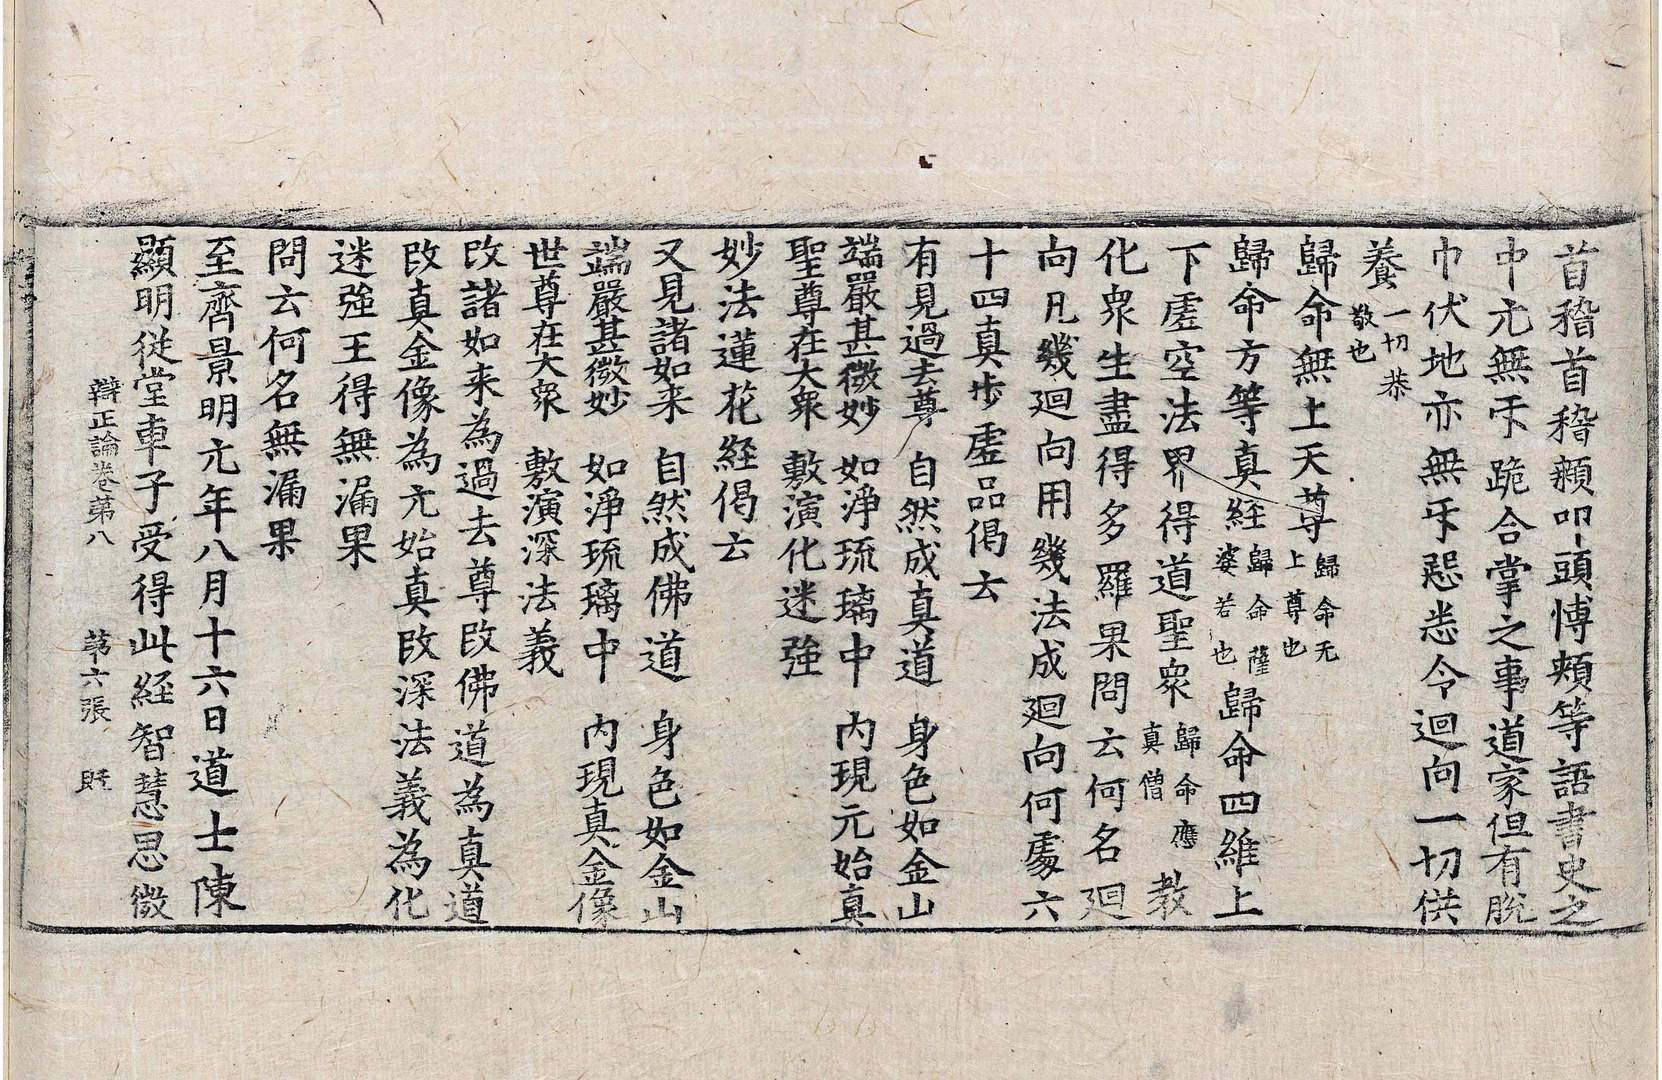 首稽首稽顙叩頭愽頰等語書史之
中元無乑跪合掌之事道家但有脫
巾伏地亦無乑惒恙令迴向一切供
養一切恭敬也
歸命無上天尊歸命无上尊也
歸命方等真経歸命薩婆若也歸命四維上
下虗空法界得道聖衆歸命應真僧教
化衆生盡得多羅果問云何名迴
向凡幾迴向用幾法成迴向何處六
十四真步虗品偈云
有見過去尊 自然成真道 身色如金山
端嚴甚微妙 如淨琉璃中 内現元始真
聖尊在大衆 敷演化迷強
妙法蓮花経偈云
又見諸如来 自然成佛道 身色如金山
端嚴甚微妙 如淨琉璃中 内現真金像
世尊在大衆 敷演深法義
改諸如来為過去尊改佛道為真道
改真金像為元始真改深法義為化
迷強王得無漏果
問云何名無漏果
至齊景明元年八月十六日道士陳
顯明従堂車子受得此経智慧思微
辯正論卷苐八 苐六張 旣